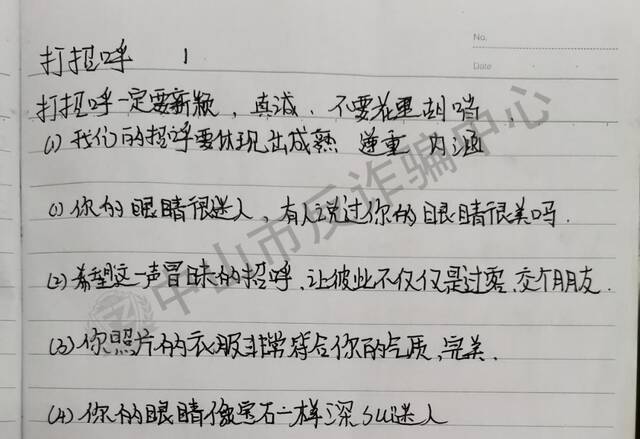 No.
Date
打招呼 1
打招呼一定要新颖，真诚、不要花里胡哨，
(1)我们的招呼要体现出成熟 稳重 内涵
(1)你的眼睛很迷人，有人说过你的眼睛很美吗.
(2)希望这一声冒昧的招呼，让彼此不仅仅是过客，交个朋友.
(3)你照片的衣服非常符合你的气质，完美.
(4)你的眼睛像宝石一样深邃迷人
中山市反诈骗中心